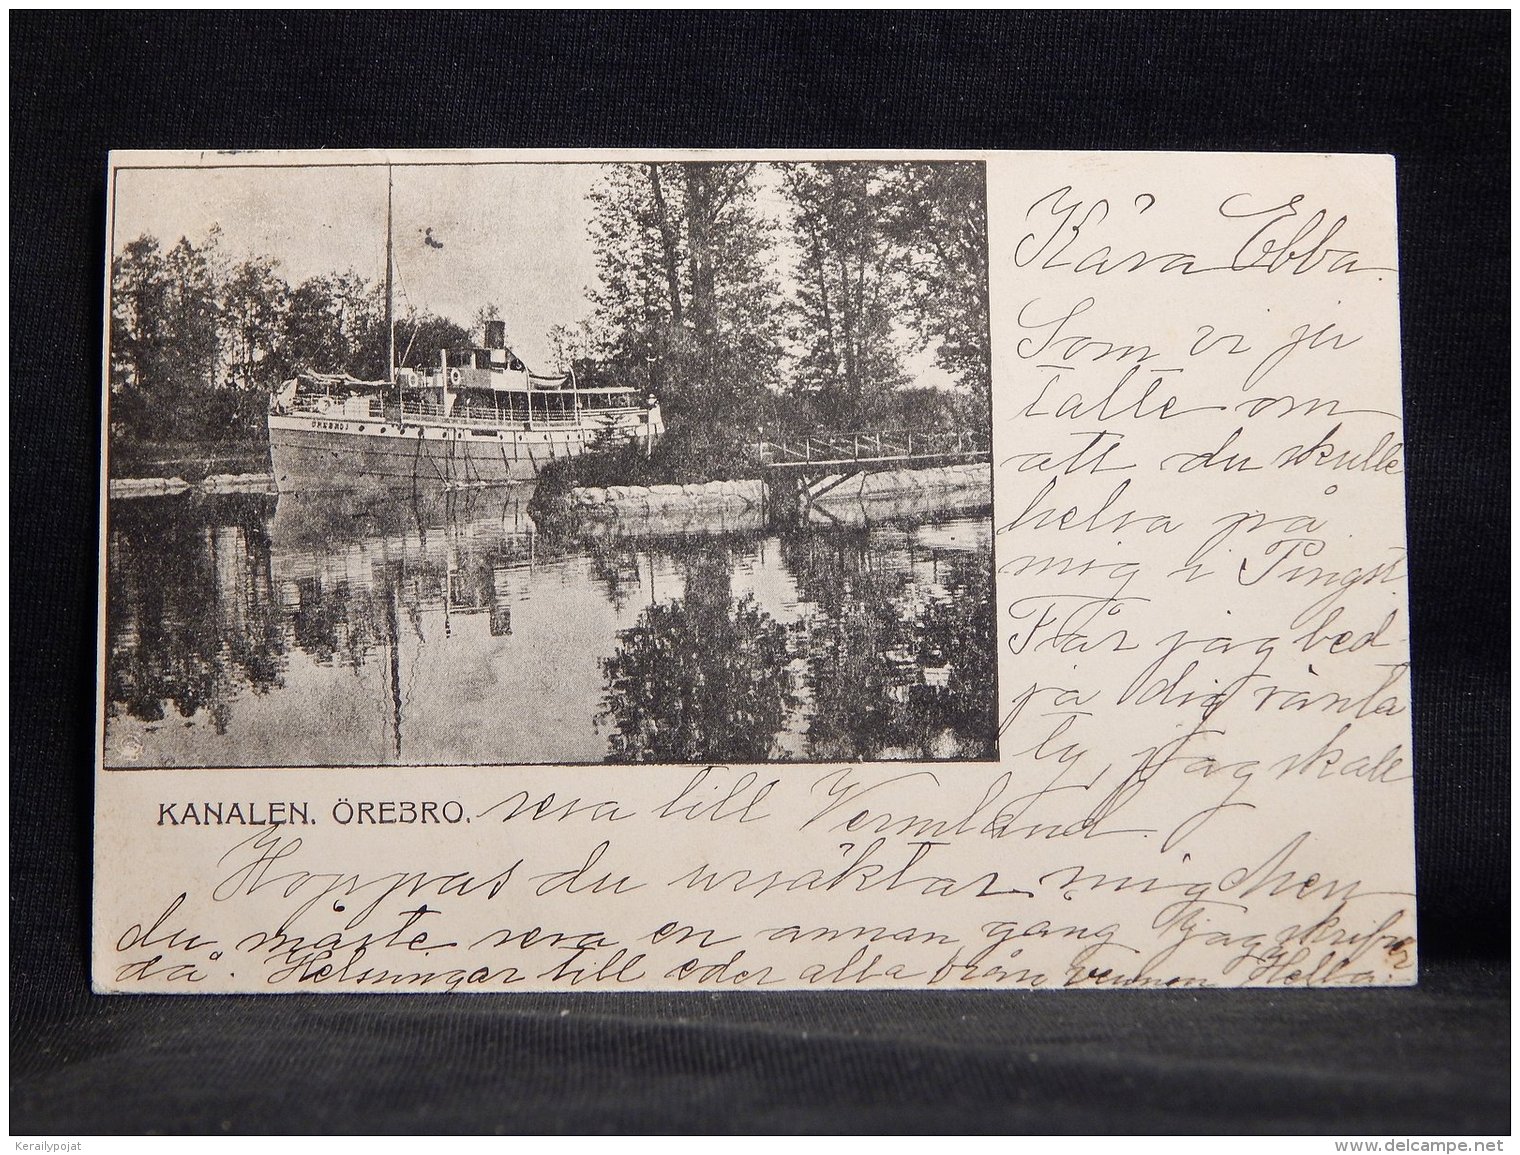 Kära Ebba.
Som vi ju
talte om
att du skulle
helsa på
mig i Pingst.
Får jag bed-
ja dig vänta
ty, jag skall
KANALEN. ÖREBRO.
resa till Vermland.
Hoppas du ursäktar mig Men
du måste resa en annan gång jag skrifver
då. Helsningar till eder alla från vännen
ÖREBRO I
Kerailypojat
www.delcampe.net